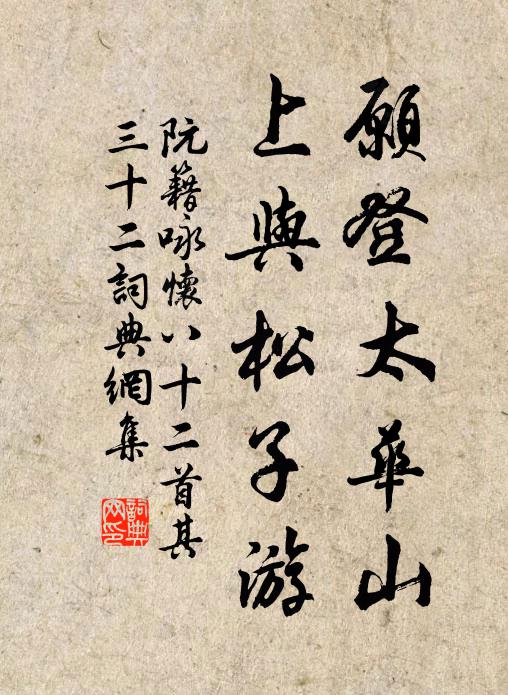 願登太華山
上與松子游
阮籍咏懷八十二首其
三十二詞典網集
詞典
网印